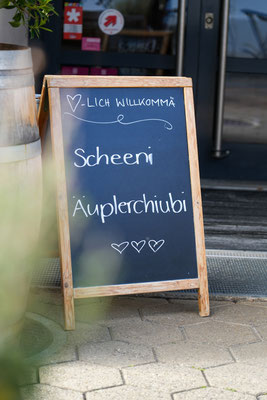 ♡-LICH WILLKOMMÄ
Scheeni
Äuplerchiubi
♡♡♡